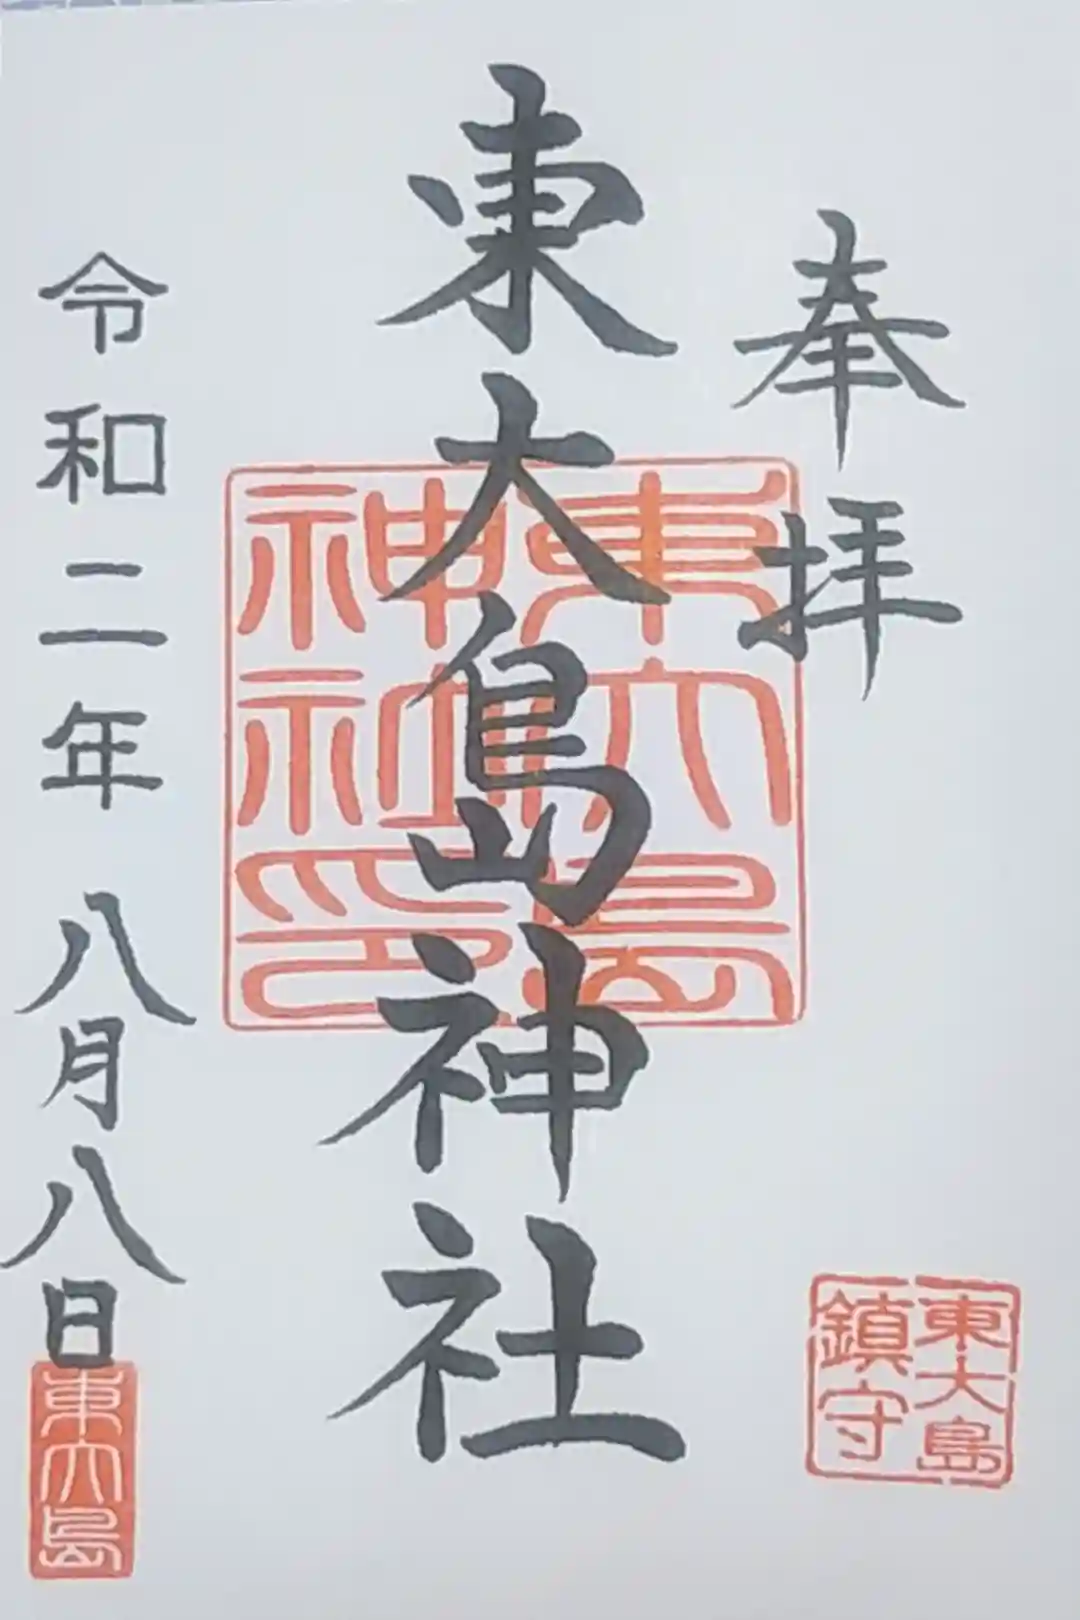 奉拝
東大島神社
東大島
神社印
東大島
鎮守
令和二年八月八日
東大島